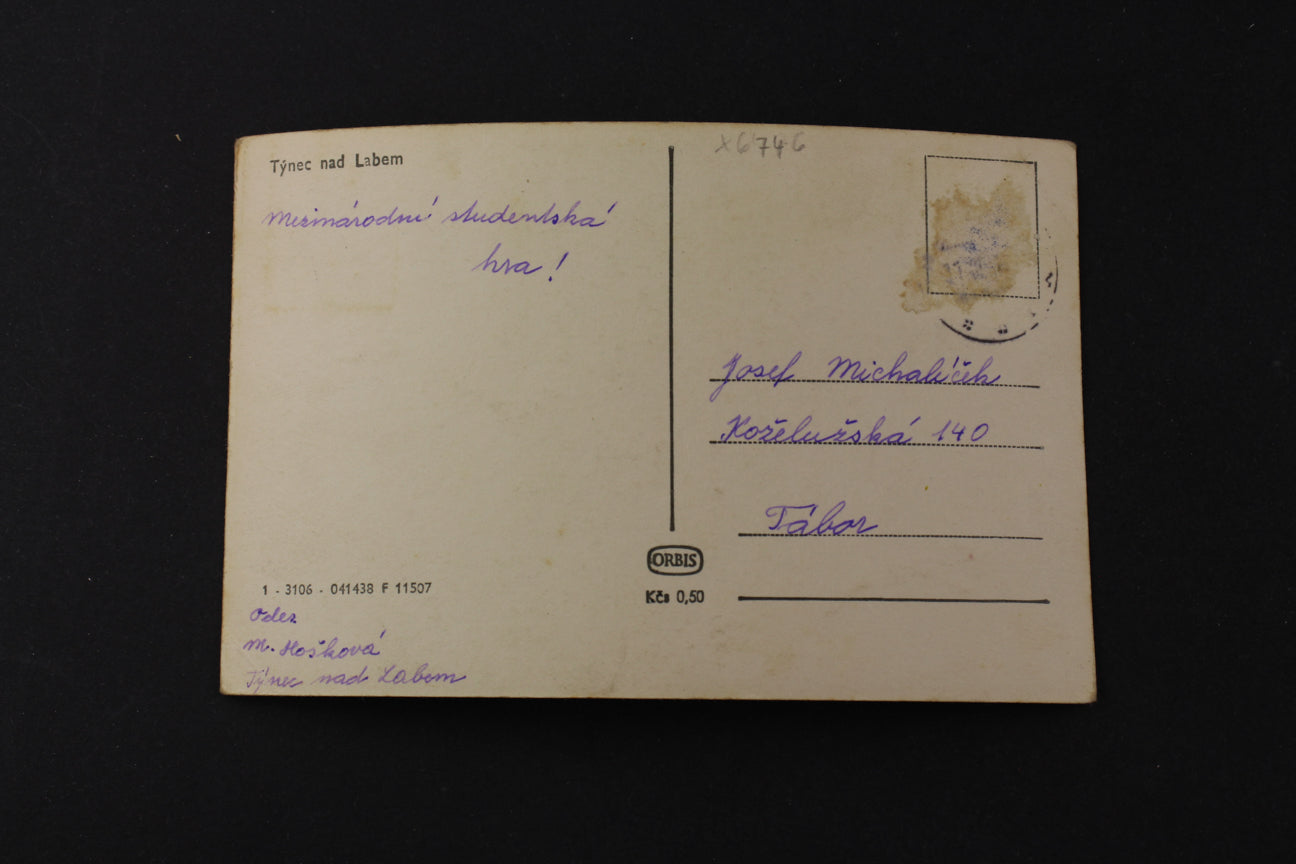 Týnec nad Labem
Mezinárodní studentská
hra!
1 - 3106 - 041438 F 11507
Odes
M. Hošková
Týnec nad Labem
ORBIS
Kčs 0,50
X6746
Josef Michalíček
Koželužská 140
Tábor